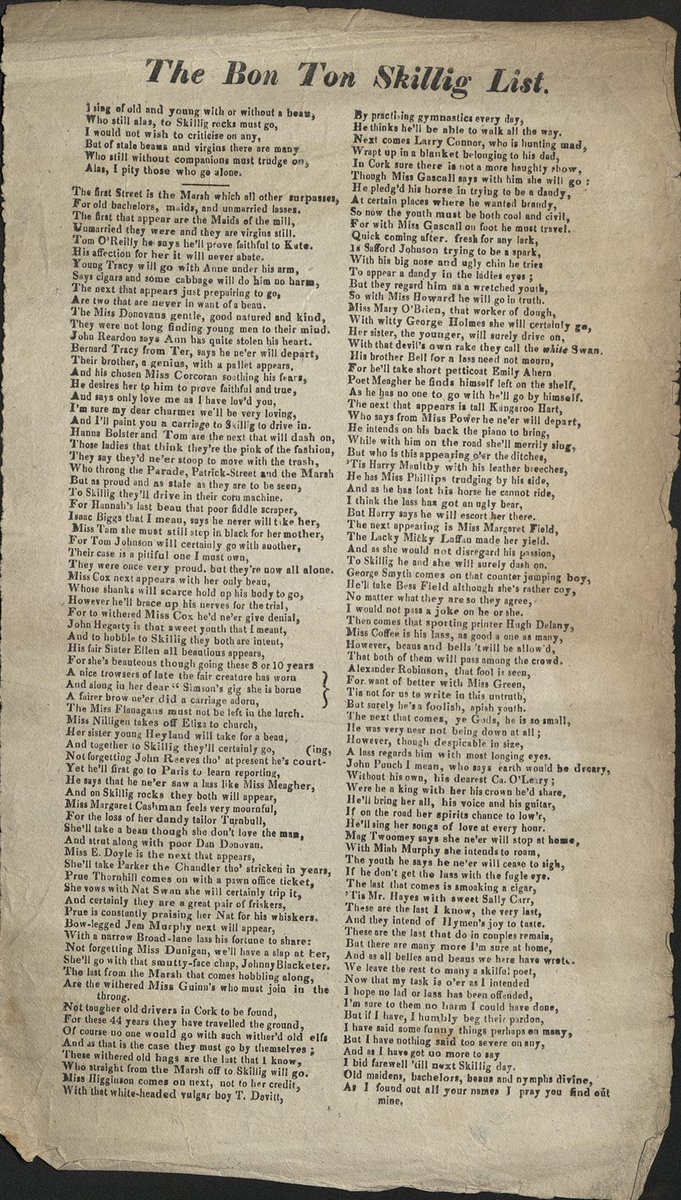 The Bon Ton Skillig List.
I sing of old and young with or without a beau,
Who still alas, to Skillig rocks must go,
I would not wish to criticise on any,
But of stale beaus and virgins there are many
Who still without companions must trudge on,
Alas, I pity those who go alone.
The first Street is the Marsh which all other surpasses,
For old bachelors, maids, and unmarried lasses.
The first that appear are the Maids of the mill,
Unmarried they were and they are virgins still.
Tom O'Reilly he says he'll prove faithful to Kate.
His affection for her it will never abate.
Young Tracy will go with Anne under his arm,
Says cigars and some cabbage will do him no harm,
The next that appears just preparing to go,
Are two that are never in want of a beau.
The Miss Donovans gentle, good natured and kind,
They were not long finding young men to their mind.
John Reardon says Ann has quite stolen his heart.
Bernard Tracy from Ter, says he ne'er will depart,
Their brother, a genius, with a pallet appears,
And his chosen Miss Corcoran soothing his fears,
He desires her to him to prove faithful and true,
And says only love me as I have lov'd you,
I'm sure my dear charmer we'll be very loving,
And I'll paint you a carriage to Skillig to drive in.
Hanna Bolster and Tom are the next that will dash on,
Those ladies that think they're the pink of the fashion,
They say they'd ne'er stoop to move with the trash,
Who throng the Parade, Patrick-Street and the Marsh
But as proud and as stale as they are to be seen,
To Skillig they'll drive in their corn machine.
For Hannah's last beau that poor fiddle scraper,
Isaac Biggs that I mean, says he never will take her,
Miss Tam she must still stop in black for her mother,
For Tom Johnson will certainly go with another,
Their case is a pitiful one I must own,
They were once very proud, but they're now all alone.
Miss Cox next appears with her only beau,
Whose shanks will scarce hold up his body to go,
However he'll brace up his nerves for the trial,
For to withered Miss Cox he'd ne'er give denial,
John Hegarty is that sweet youth that I meant,
And to hobble to Skillig they both are intent,
His fair Sister Ellen all beautious appears,
For she's beauteous though going these 8 or 10 years
A nice trowsers of late the fair creature has worn
And along in her dear "Simson's gig she is borne
A fairer brow ne'er did a carriage adorn,
The Miss Flanagans must not be left in the lurch.
Miss Nilligen takes off Eliza to church,
Her sister young Heyland will take for a beau,
And together to Skillig they'll certainly go, (ing,
Not forgetting John Reeves tho' at present he's court-
Yet he'll first go to Paris to learn reporting,
He says that he ne'er saw a lass like Miss Meagher,
And on Skillig rocks they both will appear,
Miss Margaret Cashman feels very mournful,
For the loss of her dandy tailor Turnbull,
She'll take a beau though she don't love the man,
And strut along with poor Dan Donovan.
Miss E. Doyle is the next that appears,
She'll take Parker the Chandler tho' stricken in years,
Prue Thornhill comes on with a pawn office ticket,
She vows with Nat Swan she will certainly trip it,
And certainly they are a great pair of friskers,
Prue is constantly praising her Nat for his whiskers.
Bow-legged Jem Murphy next will appear,
With a narrow Broad-lane lass his fortune to share:
Not forgetting Miss Dunigan, we'll have a slap at her,
She'll go with that smutty-face chap, Johnny Blacketer.
The last from the Marsh that comes hobbling along,
Are the withered Miss Guinn's who must join in the
throng.
Not tougher old drivers in Cork to be found,
For these 44 years they have travelled the ground,
Of course no one would go with such wither'd old elfs
And as that is the case they must go by themselves;
These withered old hags are the last that I know,
Who straight from the Marsh off to Skillig will go.
Miss Higginson comes on next, not to her credit,
With that white-headed vulgar boy T. Devitt,
By practising gymnastics every day,
He thinks he'll be able to walk all the way.
Next comes Larry Connor, who is hunting mad,
Wrapt up in a blanket belonging to his dad,
In Cork sure there is not a more haughty show,
Though Miss Gascall says with him she will go:
He pledg'd his horse in trying to be a dandy,
At certain places where he wanted brandy,
So now the youth must be both cool and civil,
For with Miss Gascall on foot he must travel.
Quick coming after. fresh for any lark,
Is Safford Johnson trying to be a spark,
With his big nose and ugly chin he tries
To appear a dandy in the ladies eyes;
But they regard him as a wretched youth,
So with Miss Howard he will go in truth.
Miss Mary O'Brien, that worker of dough,
With witty George Holmes she will certainly go,
Her sister, the younger, will surely drive on,
With that devil's own rake they call the white Swan.
His brother Bell for a lass need not mourn,
For he'll take short petticoat Emily Ahern
Poet Meagher he finds himself left on the shelf,
As he has no one to go with he'll go by himself.
The next that appears is tall Kangaroo Hart,
Who says from Miss Power he ne'er will depart,
He intends on his back the piano to bring,
While with him on the road she'll merrily sing,
But who is this appearing o'er the ditches,
'Tis Harry Maultby with his leather breeches,
He has Miss Phillips trudging by his side,
And as he has lost his horse he cannot ride,
I think the lass has got an ugly bear,
But Harry says he will escort her there.
The next appearing is Miss Margaret Field,
The Lacky Micky Laffan made her yield.
And as she would not disregard his passion,
To Skillig he and she will surely dash on.
George Smyth comes on that counter jumping boy,
He'll take Bess Field although she's rather coy,
No matter what they are so they agree,
I would not pass a joke on he or she.
Then comes that sporting printer Hugh Delany,
Miss Coffee is his lass, as good a one as many,
However, beaus and bells 'twill be allow'd,
That both of them will pass among the crowd.
Alexander Robinson, that fool is seen,
For want of better with Miss Green,
Tis not for us to write in this untruth,
But surely he's a foolish, apish youth.
The next that comes, ye Gods, he is so small,
He was very near not being down at all;
However, though despicable in size,
A lass regards him with most longing eyes.
John Punch I mean, who says earth would be dreary,
Without his own, his dearest Ca. O'Leary;
Were he a king with her his crown he'd share,
He'll bring her all, his voice and his guitar,
If on the road her spirits chance to low'r,
He'll sing her songs of love at every hour.
Mag Twoomey says she ne'er will stop at home,
With Miah Murphy she intends to roam,
The youth he says he ne'er will cease to sigh,
If he don't get the lass with the fugle eye.
The last that comes is smoaking a cigar,
'Tis Mr. Hayes with sweet Sally Carr,
These are the last I know, the very last,
And they intend of Hymen's joy to taste.
These are the last that do in couples remain,
But there are many more I'm sure at home,
And as all belles and beaus we here have wrote.
We leave the rest to many a skilful poet,
Now that my task is o'er as I intended
I hope no lad or lass has been offended,
I'm sure to them no harm I could have done,
But if I have, I humbly beg their pardon,
I have said some funny things perhaps on many,
But I have nothing said too severe on any,
And as I have got no more to say
I bid farewell 'till next Skillig day.
Old maidens, bachelors, beaus and nymphs divine,
As I found out all your names I pray you find out
mine,